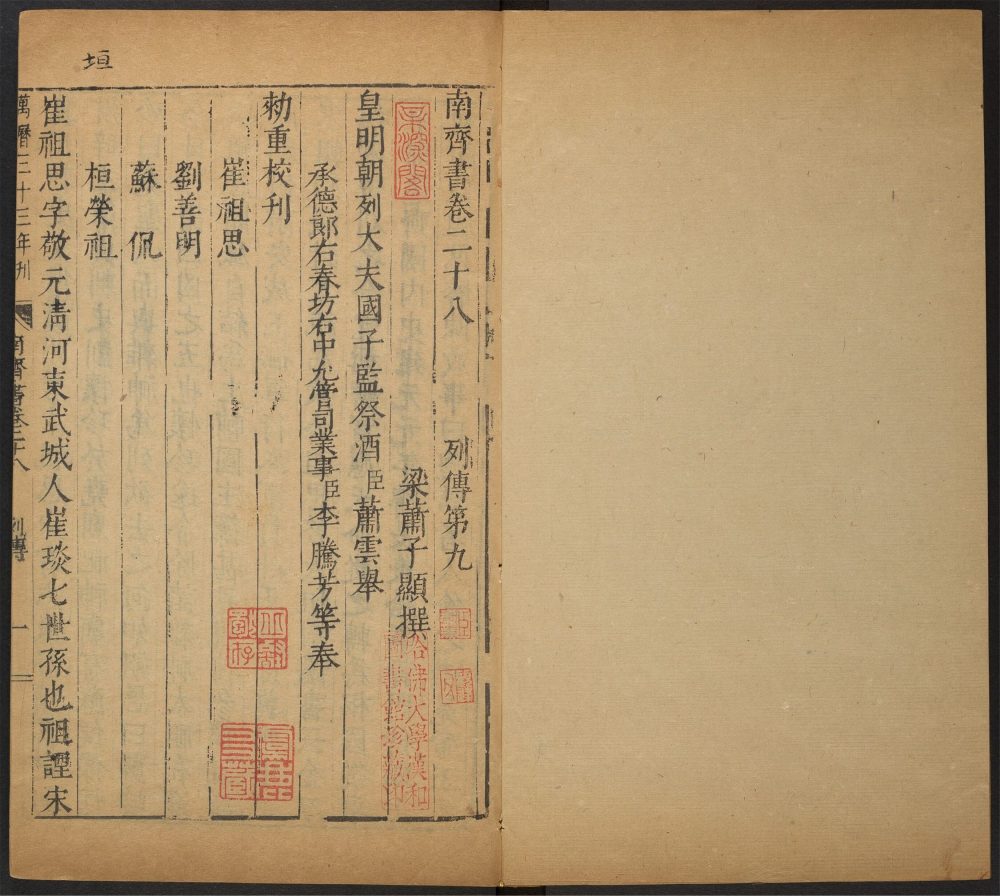 南齊書卷二十八　列傳第九
梁蕭子顯撰
皇明朝列大夫國子監祭酒臣蕭雲舉
承德郎右春坊右中允管司業事臣李騰芳等奉
勅重校刊
崔祖思
劉善明
蘇侃
桓榮祖
崔祖思字敬元淸河東武城人崔琰七世孫也祖諲宋
萬曆三十三年刊
南齊書卷二十八
列傳
一
垣
哈佛大學漢和
圖書館珍藏印